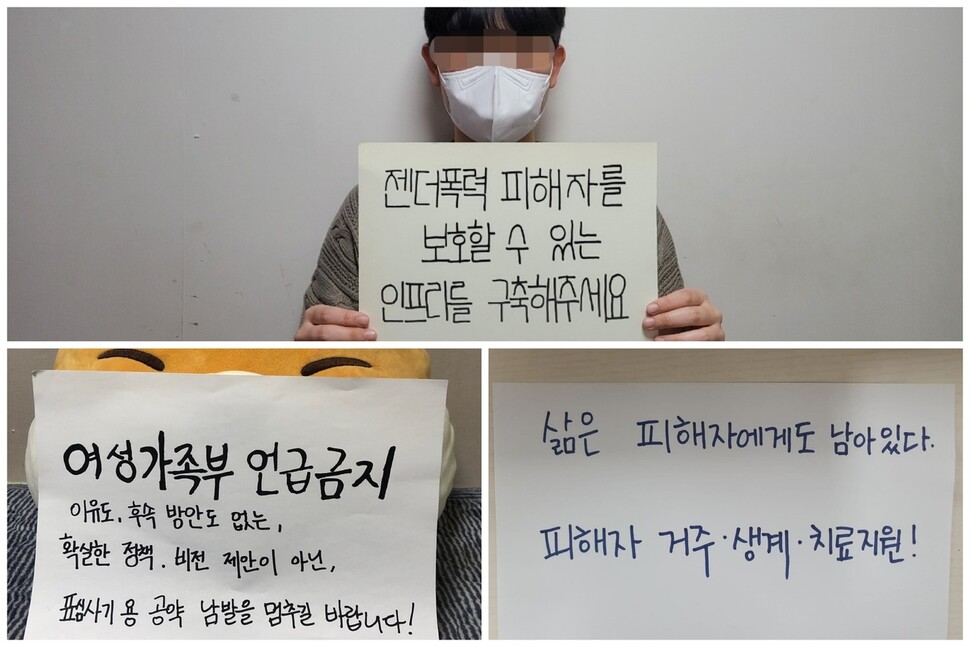 젠더폭력 피해자를
보호할 수 있는
인프라를 구축해주세요
여성가족부 언급금지
이유도, 후속 방안도 없는,
확실한 정책. 비전 제안이 아닌,
표심사기용 공약 남발을 멈추길 바랍니다!
삶은 피해자에게도 남아있다.
피해자 거주·생계·치료지원!